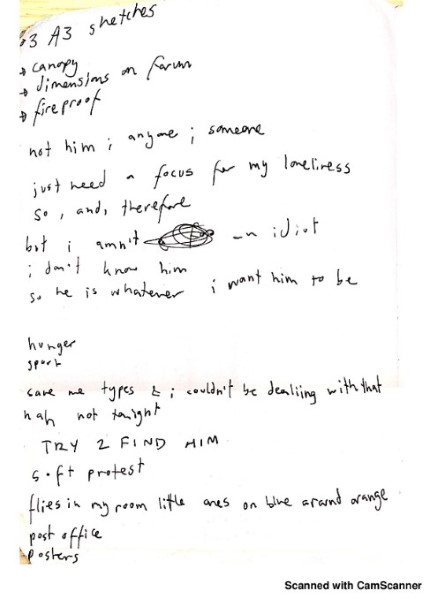 3 A3 sketches
→ canopy
→ dimensions on forum
→ fireproof
not him ; anyone ; someone
just need a focus for my loneliness
so , and, therefore
but i amn't — n idiot
i don't know him
so he is whatever i want him to be
hunger
save me types & i couldn't be dealiing with that
nah not tonight
TRY 2 FIND HIM
soft protest
flies in my room little ones on blue around orange
post office
posters
Scanned with CamScanner